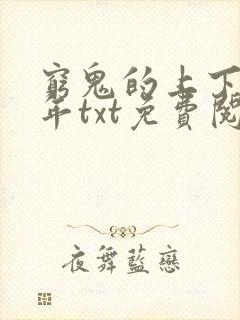 窮鬼的上下
年txt免費閱
夜舞藍戀